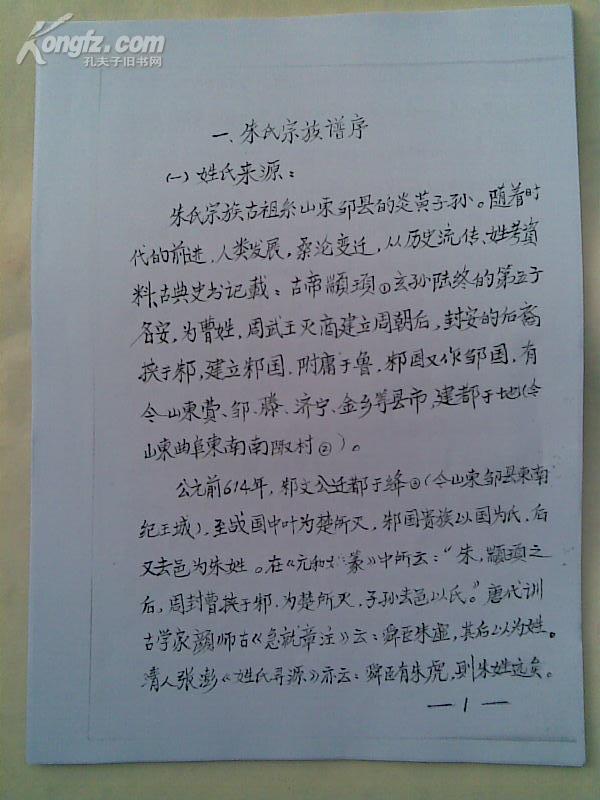 Kongfz.com
孔夫子旧书网
一、朱氏宗族谱序
(一)姓氏来源：
朱氏宗族古祖系山东邹县的炎黄子孙。随着时
代的前进，人类发展，桑沧变迁，从历史流传、姓考资
料、古典史书记载：古帝颛顼①玄孙陆终的第五子
名安，为曹姓，周武王灭商建立周朝后，封安的后裔
挟于邾，建立邾国，附庸于鲁，邾国又作邹国，有
今山东费、邹、滕、济宁、金乡等县市，建都于地(今
山东曲阜东南南陬村②)。
公元前614年，邾文公迁都于绎③(今山东邹县东南
纪王城)，至战国中叶为楚所灭，邾国贵族以国为氏，后
又去邑为朱姓。在《元和姓纂》中所云："朱，颛顼之
后，周封曹挟于邾，为楚所灭，子孙去邑以氏。"唐代训
古学家颜师古《急就章注》云：舜臣朱虎，其后以为姓。
清人张澎《姓氏寻源》亦云：舜臣有朱虎，则朱姓远矣。
— 1 —